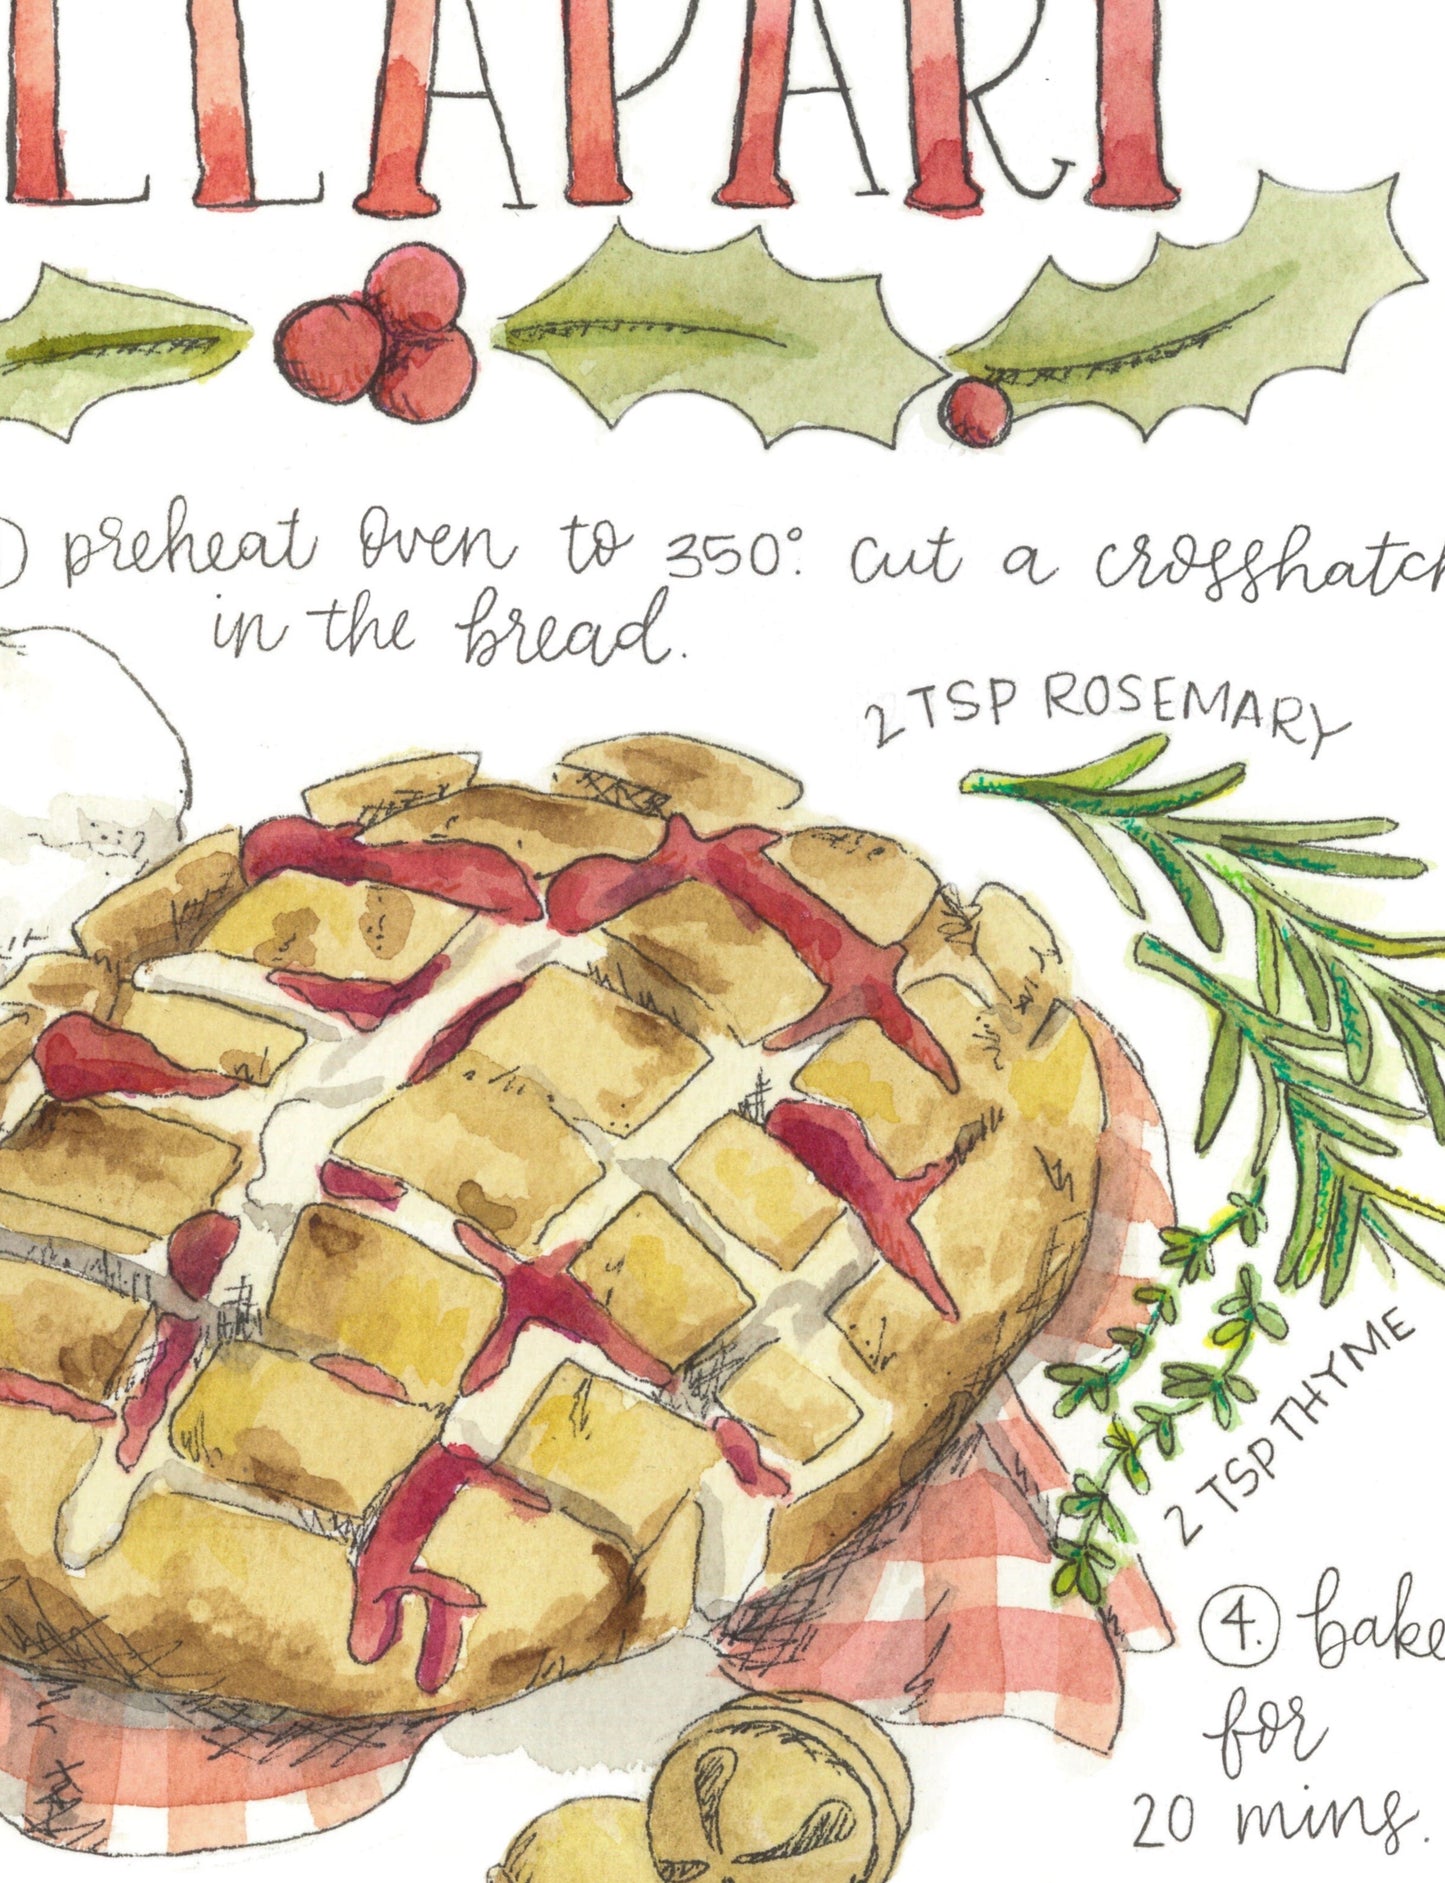 LLAPART
) preheat oven to 350°. cut a crosshatch
in the bread.
2 TSP ROSEMARY
2 TSP THYME
4. bake
for
20 mins.